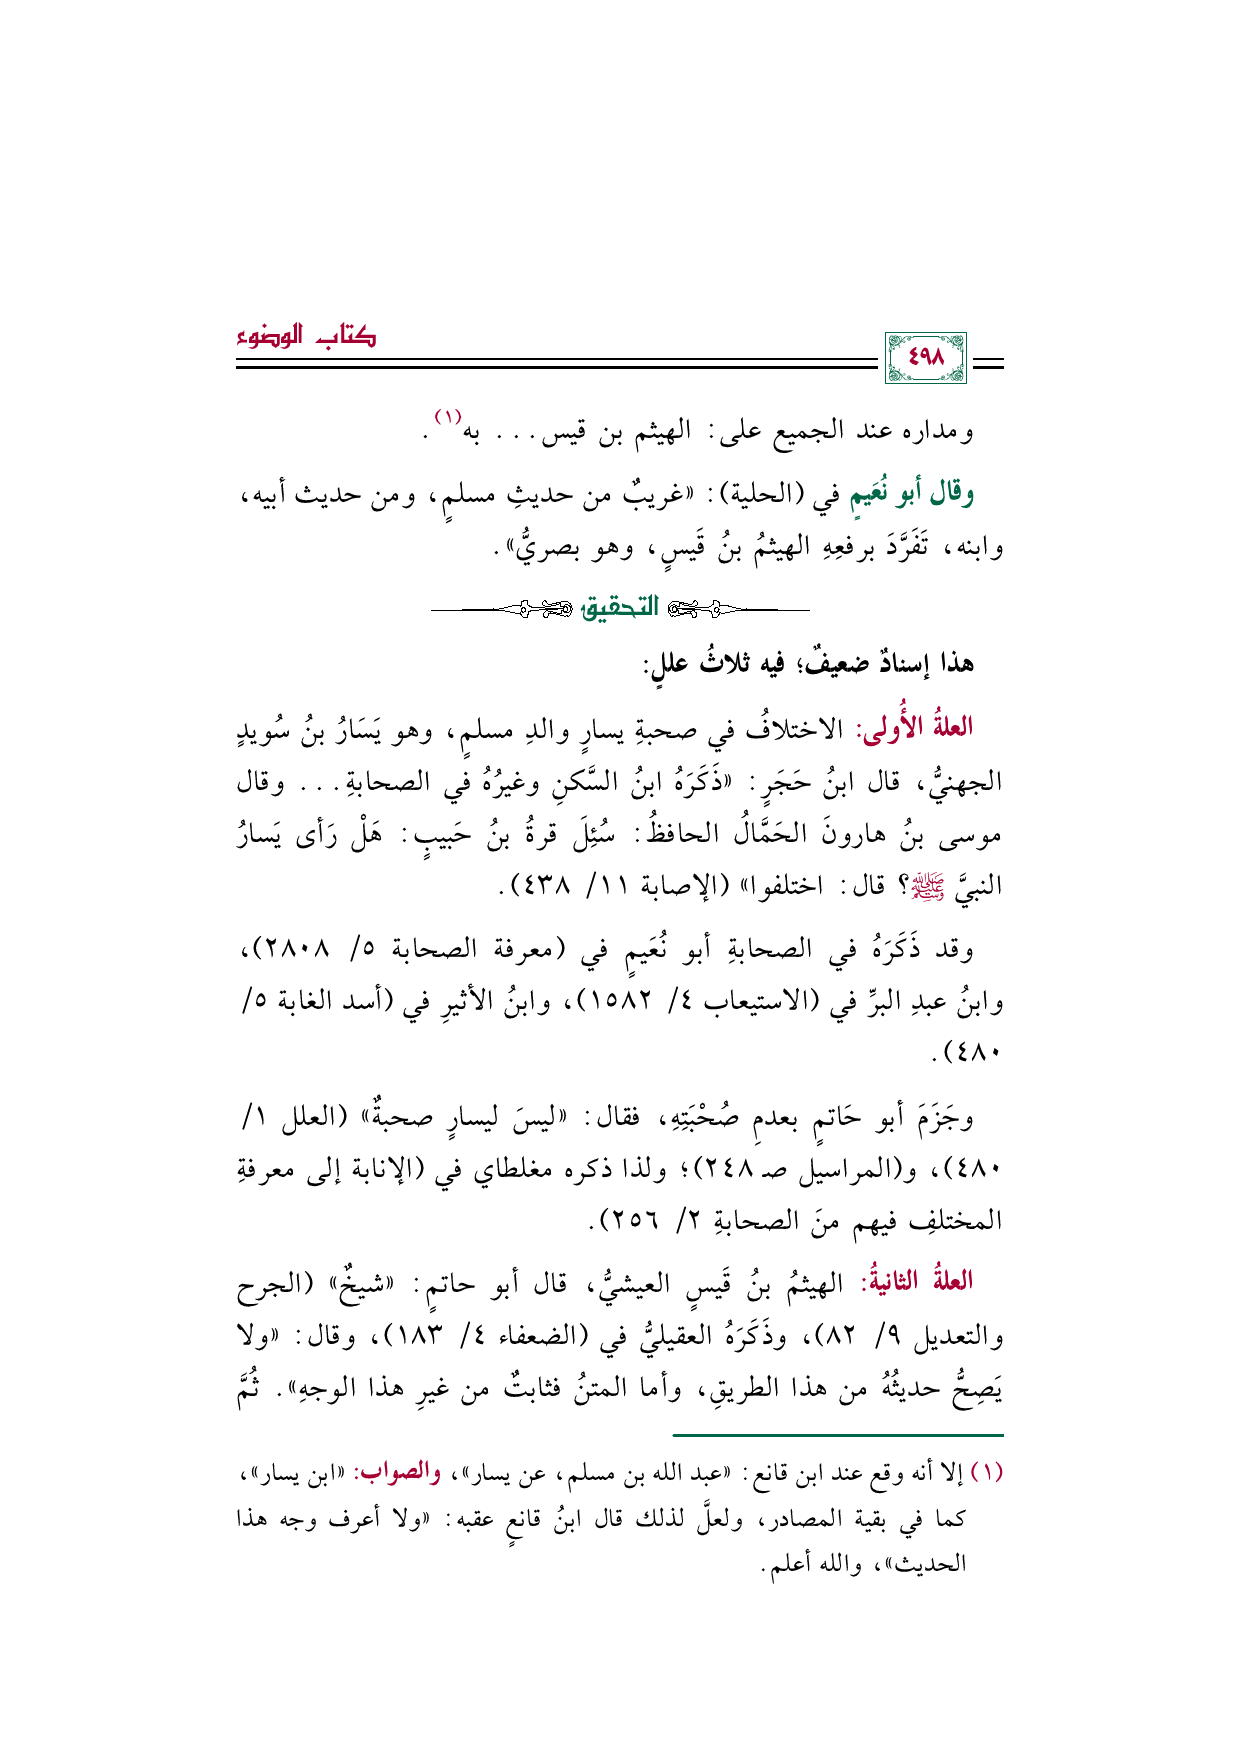 كتاب الوضوء
٤٩٨
ومداره عند الجميع على: الهيثم بن قيس... به(١).
وقال أبو نُعَيمٍ في (الحلية): «غريبٌ من حديثِ مسلمٍ، ومن حديث أبيه،
وابنه، تَفَرَّدَ برفعِهِ الهيثمُ بنُ قَيسٍ، وهو بصريٌّ».
التحقيق
هذا إسنادٌ ضعيفٌ؛ فيه ثلاثُ عللٍ:
العلةُ الأُولى: الاختلافُ في صحبةِ يسارٍ والدِ مسلمٍ، وهو يَسَارُ بنُ سُويدٍ
الجهنيُّ، قال ابنُ حَجَرٍ: «ذَكَرَهُ ابنُ السَّكنِ وغيرُهُ في الصحابةِ... وقال
موسى بنُ هارونَ الحَمَّالُ الحافظُ: سُئِلَ قرةُ بنُ حَبيبٍ: هَلْ رَأى يَسارُ
النبيَّ ﷺ؟ قال: اختلفوا» (الإصابة ١١/ ٤٣٨).
وقد ذَكَرَهُ في الصحابةِ أبو نُعَيمٍ في (معرفة الصحابة ٥/ ٢٨٠٨)،
وابنُ عبدِ البرِّ في (الاستيعاب ٤/ ١٥٨٢)، وابنُ الأثيرِ في (أسد الغابة ٥/
٤٨٠).
وجَزَمَ أبو حَاتمٍ بعدمِ صُحْبَتِهِ، فقال: «ليسَ ليسارٍ صحبةٌ» (العلل ١/
٤٨٠)، و(المراسيل صـ ٢٤٨)؛ ولذا ذكره مغلطاي في (الإنابة إلى معرفةِ
المختلفِ فيهم منَ الصحابةِ ٢/ ٢٥٦).
العلةُ الثانيةُ: الهيثمُ بنُ قَيسٍ العيشيُّ، قال أبو حاتمٍ: «شيخٌ» (الجرح
والتعديل ٩/ ٨٢)، وذَكَرَهُ العقيليُّ في (الضعفاء ٤/ ١٨٣)، وقال: «ولا
يَصِحُّ حديثُهُ من هذا الطريقِ، وأما المتنُ فثابتٌ من غيرِ هذا الوجهِ». ثُمَّ
(١) إلا أنه وقع عند ابن قانع: «عبد الله بن مسلم، عن يسار»، والصواب: «ابن يسار»،
كما في بقية المصادر، ولعلَّ لذلك قال ابنُ قانعٍ عقبه: «ولا أعرف وجه هذا
الحديث»، والله أعلم.